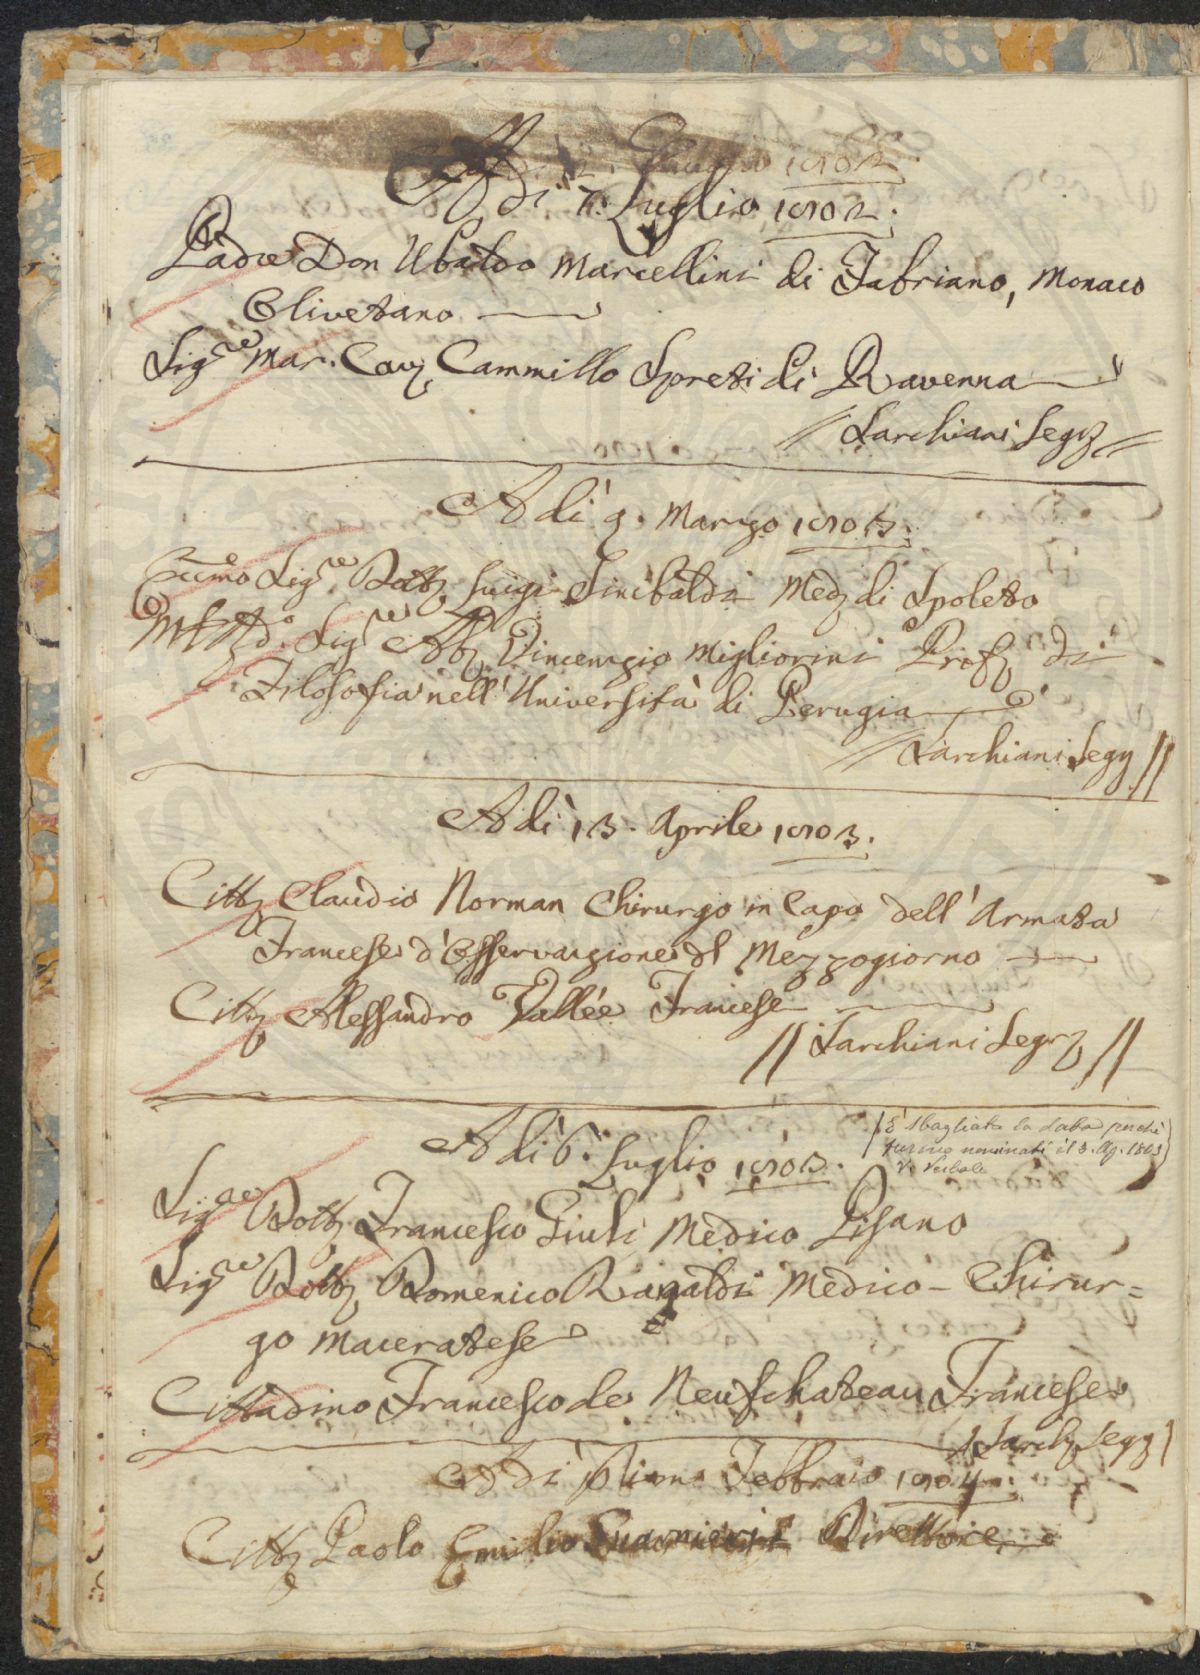 Giugno 1802.
Adì 7. Luglio 1802.
Padre Don Ubaldo Marcellini di Fabriano, Monaco
Olivetano
Sig.re Mar. Cav. Cammillo Spreti di Ravenna
// Tarchiani Segr. //
Adì 9. Marzo 1803.
Eccmo Sig.re Dott. Luigi Sinibaldi Med. di Spoleto
Sig.re Ab. Vincenzio Migliorini Prof. di
Filosofia nell' Università di Perugia
// Tarchiani Segr. //
Adì 13. Aprile 1803.
Citt. Claudio Norman Chirurgo in Capo dell' Armata
Francese d' Osservazione del Mezzogiorno
Citt. Alessandro Vallée Francese
// Tarchiani Segr. //
Adì 6. Luglio 1803.
(È sbagliata la data perchè
furono nominati il 3. Ag. 1803
V. Verbale)
Sig.re Dott. Francesco Giuli Medico Pisano
Sig.re Dott. Domenico Rinaldi Medico - Chirur=
go Maceratese
Cittadino Francesco de Neufchateau Francese
Tarch. Segr.
Adì primo Febbraio 1804.
Citt. Paolo Emilio Guarnieri Direttore